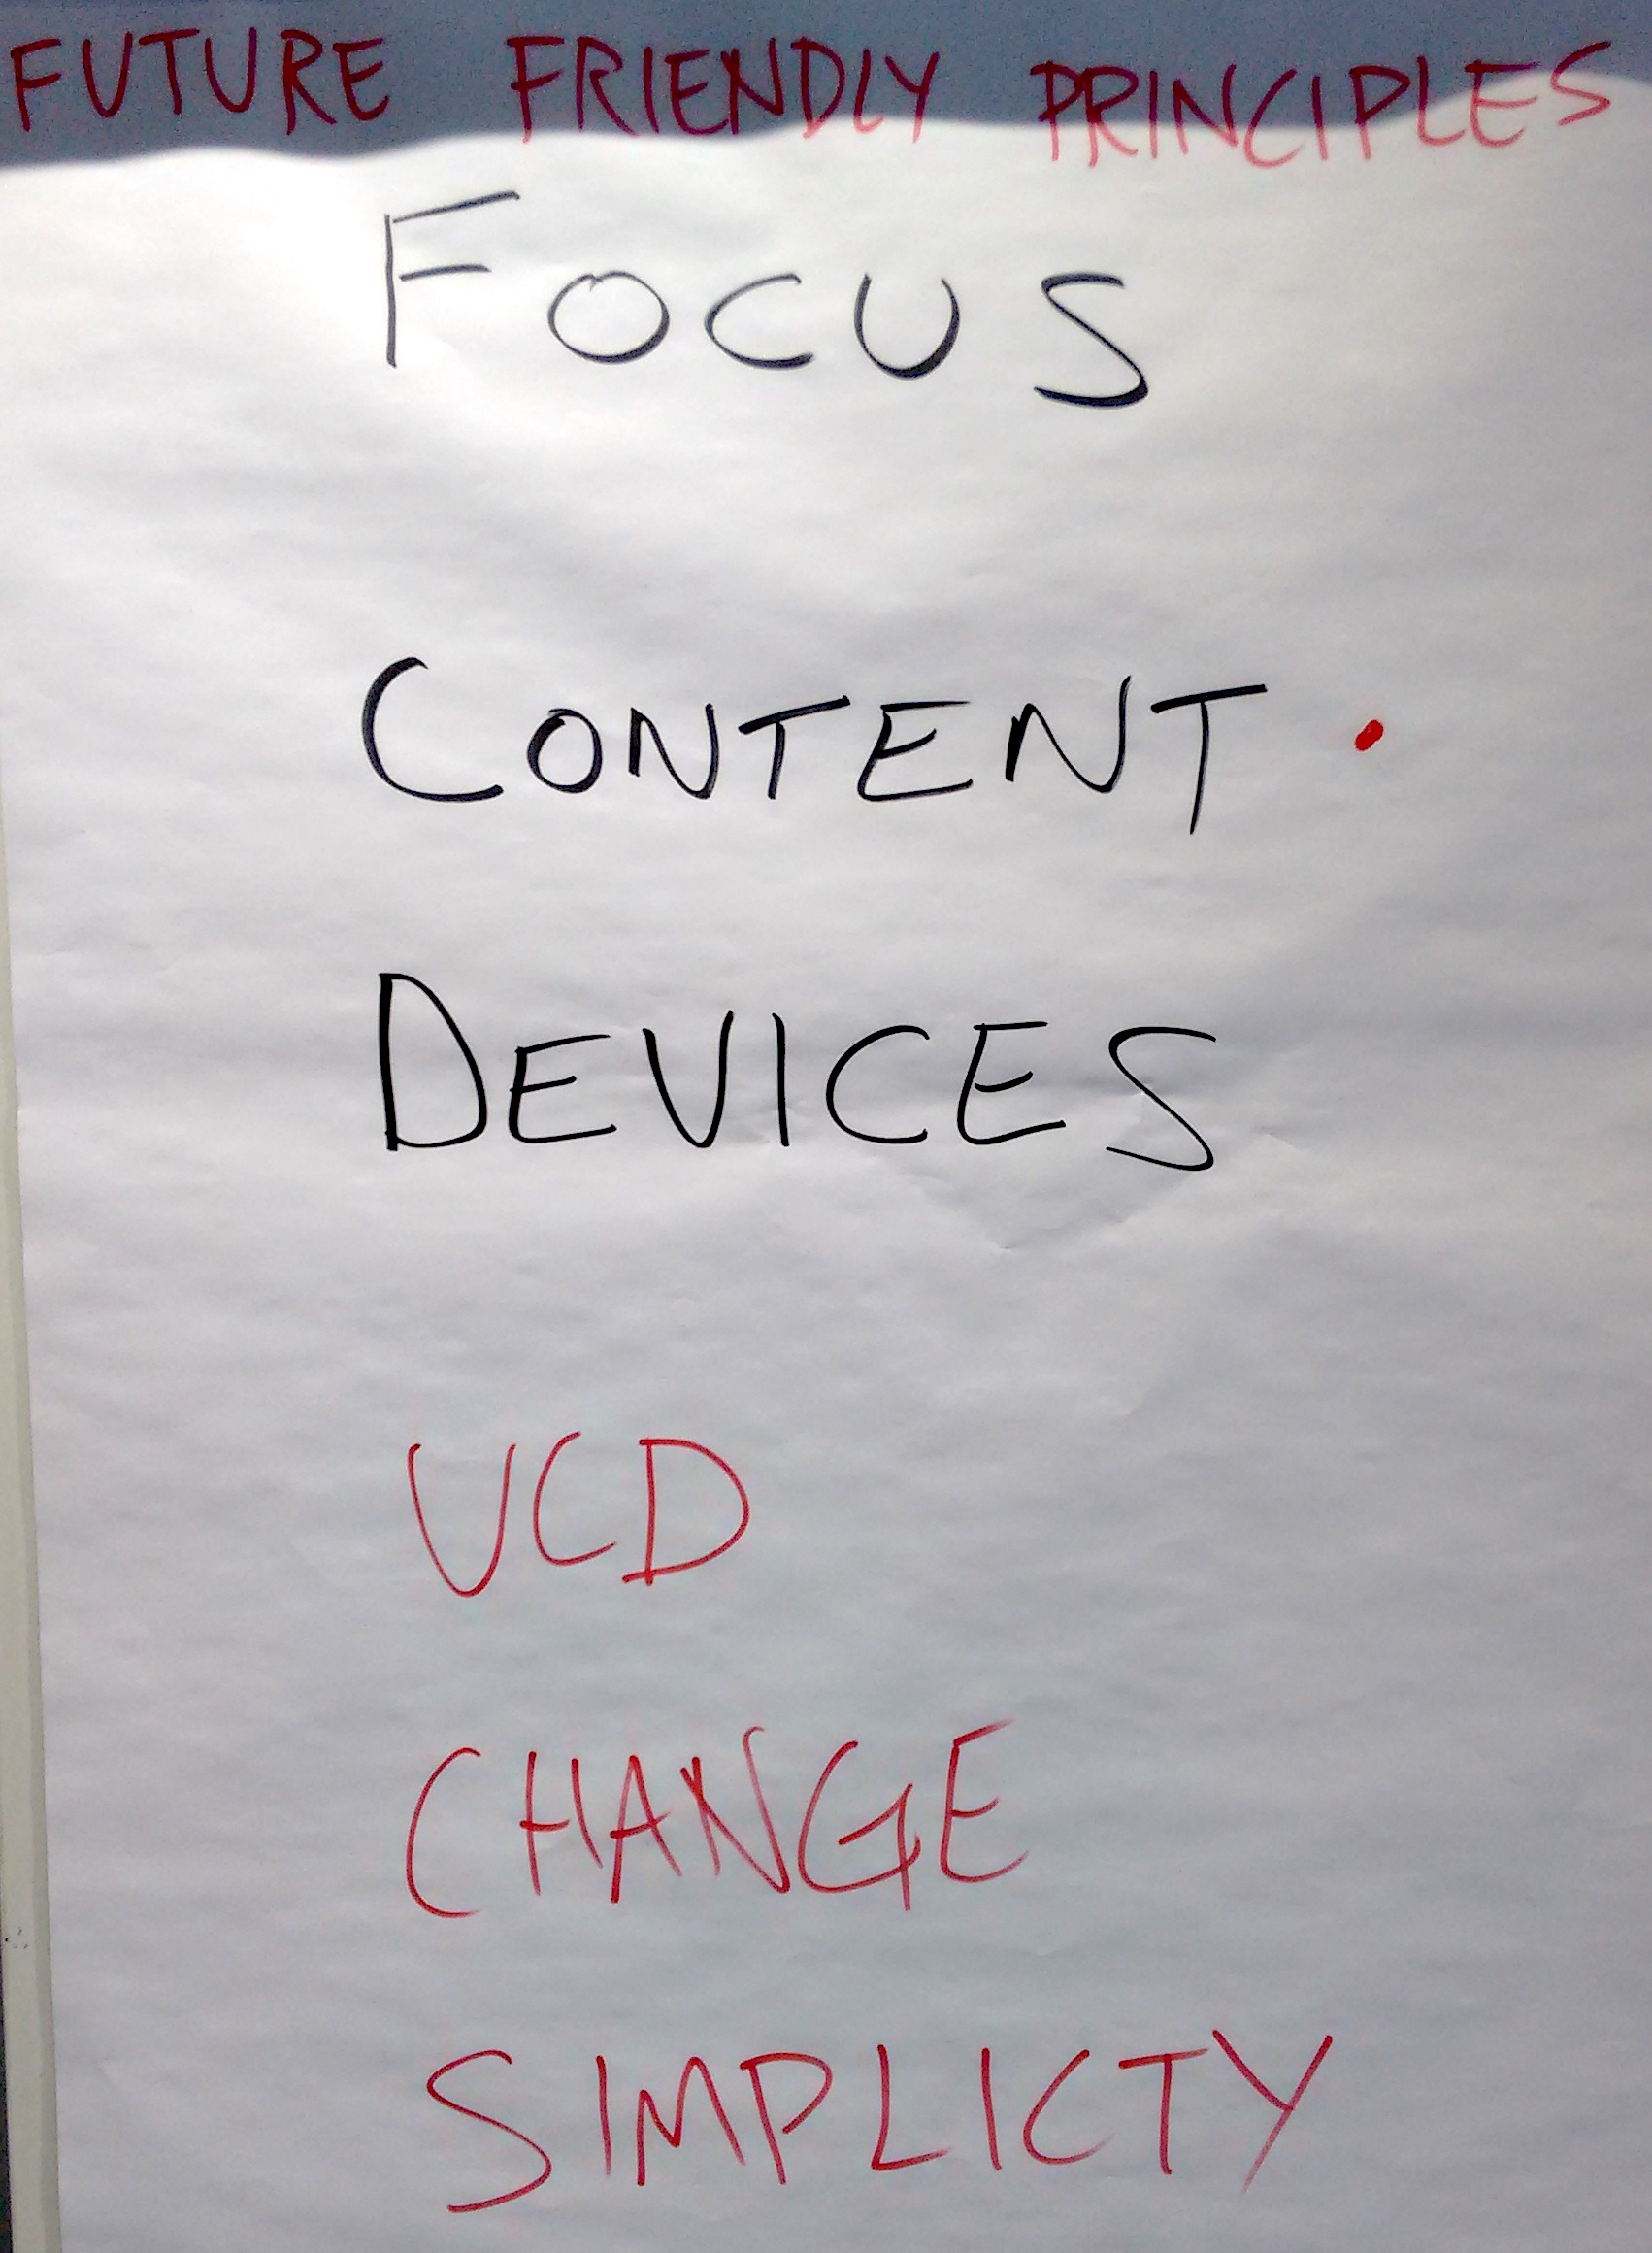 FUTURE FRIENDLY PRINCIPLES
FOCUS
CONTENT
DEVICES
UCD
CHANGE
SIMPLICTY